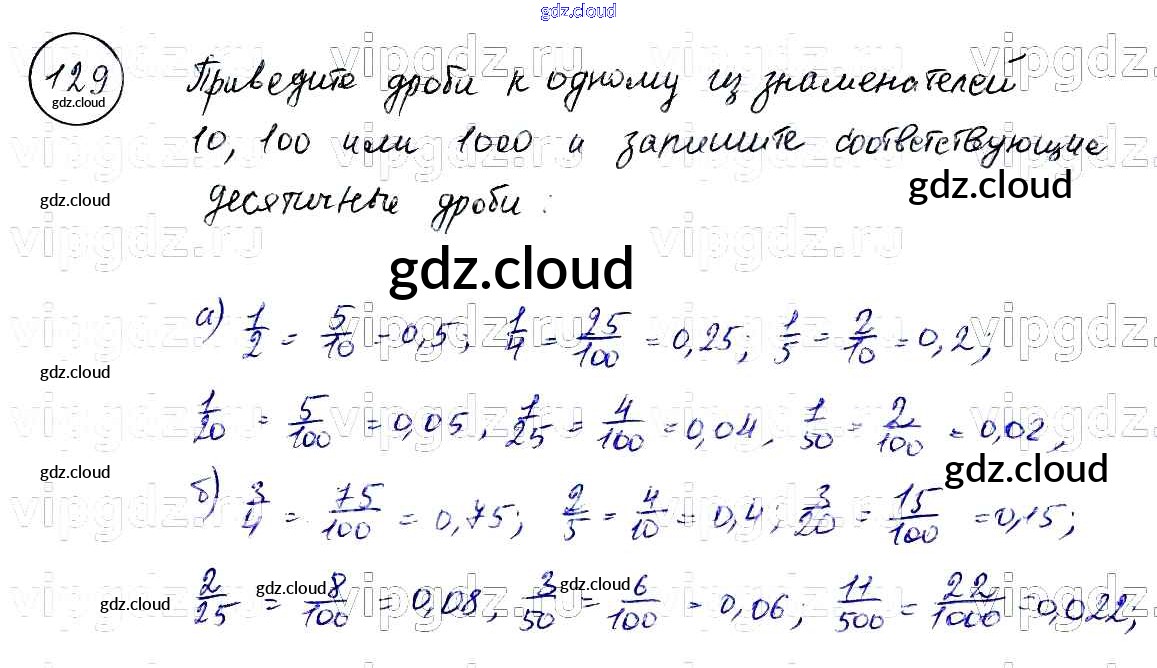 gdz.cloud
129
gdz.cloud
Приведите дроби к одному из знаменателей
10, 100 или 1000 и запишите соответствующие
gdz.cloud
gdz.cloud
десятичные дроби:
vipgdz.ru
gdz.cloud
а) 1/2 = 5/10 = 0,5; 1/4 = 25/100 = 0,25; 1/5 = 2/10 = 0,2;
gdz.cloud
1/20 = 5/100 = 0,05, 1/25 = 4/100 = 0,04, 1/50 = 2/100 = 0,02;
gdz.cloud
gdz.cloud
б) 3/4 = 75/100 = 0,75; 2/5 = 4/10 = 0,4; 3/20 = 15/100 = 0,15;
gdz.cloud
gdz.cloud
gdz.cloud
2/25 = 8/100 = 0,08, 3/50 = 6/100 = 0,06; 11/500 = 22/1000 = 0,022;